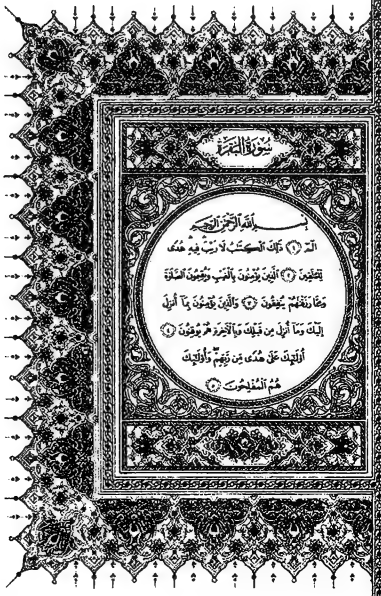 سُورَةُ البَقَرَةِ
بِسْمِ اللَّهِ الرَّحْمَٰنِ الرَّحِيمِ
الٓمٓ ﴿١﴾ ذَٰلِكَ الْكِتَٰبُ لَا رَيْبَ فِيهِ هُدًى
لِّلْمُتَّقِينَ ﴿٢﴾ الَّذِينَ يُؤْمِنُونَ بِالْغَيْبِ وَيُقِيمُونَ الصَّلَوٰةَ
وَمِمَّا رَزَقْنَٰهُمْ يُنفِقُونَ ﴿٣﴾ وَالَّذِينَ يُؤْمِنُونَ بِمَآ أُنزِلَ
إِلَيْكَ وَمَآ أُنزِلَ مِن قَبْلِكَ وَبِالْآخِرَةِ هُمْ يُوقِنُونَ ﴿٤﴾
أُو۟لَٰٓئِكَ عَلَىٰ هُدًى مِّن رَّبِّهِمْ ۖ وَأُو۟لَٰٓئِكَ
هُمُ الْمُفْلِحُونَ ﴿٥﴾